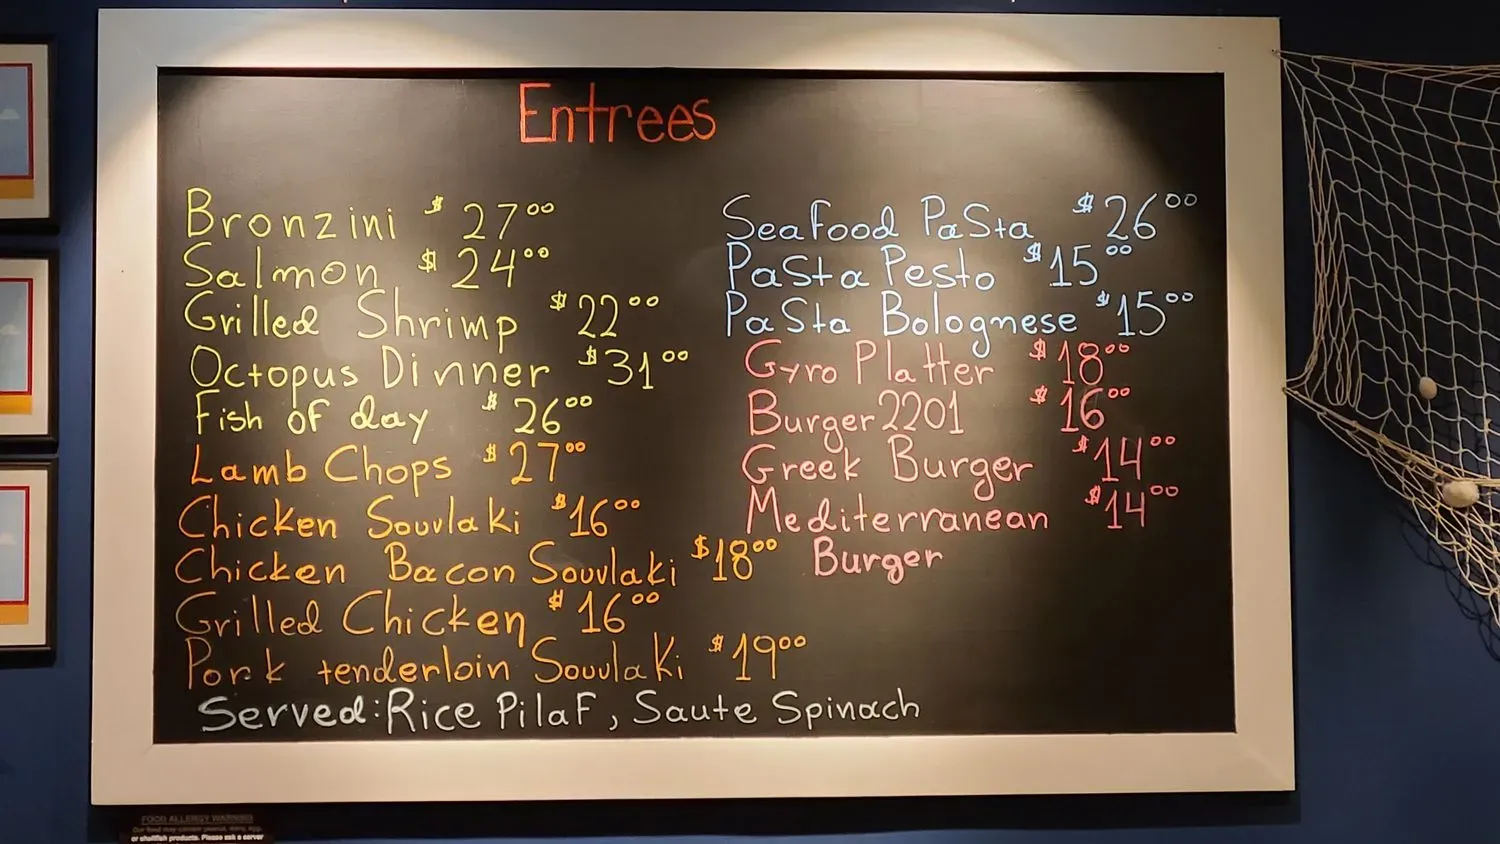 Entrees
Bronzini $ 27⁰⁰
Salmon $ 24⁰⁰
Grilled Shrimp $ 22⁰⁰
Octopus Dinner $31⁰⁰
Fish of day $ 26⁰⁰
Lamb Chops $ 27⁰⁰
Chicken Souvlaki $16⁰⁰
Chicken Bacon Souvlaki $18⁰⁰
Grilled Chicken $ 16⁰⁰
Pork tenderloin Souvlaki $19⁰⁰
Served: Rice Pilaf, Saute Spinach
Seafood Pasta $26⁰⁰
Pasta Pesto $15⁰⁰
Pasta Bolognese $15⁰⁰
Gyro Platter $18⁰⁰
Burger 2201 $16⁰⁰
Greek Burger $14⁰⁰
Mediterranean $14⁰⁰
Burger
FOOD ALLERGY WARNING
Our food may contain peanut, dairy, egg,
or shellfish products. Please ask a server